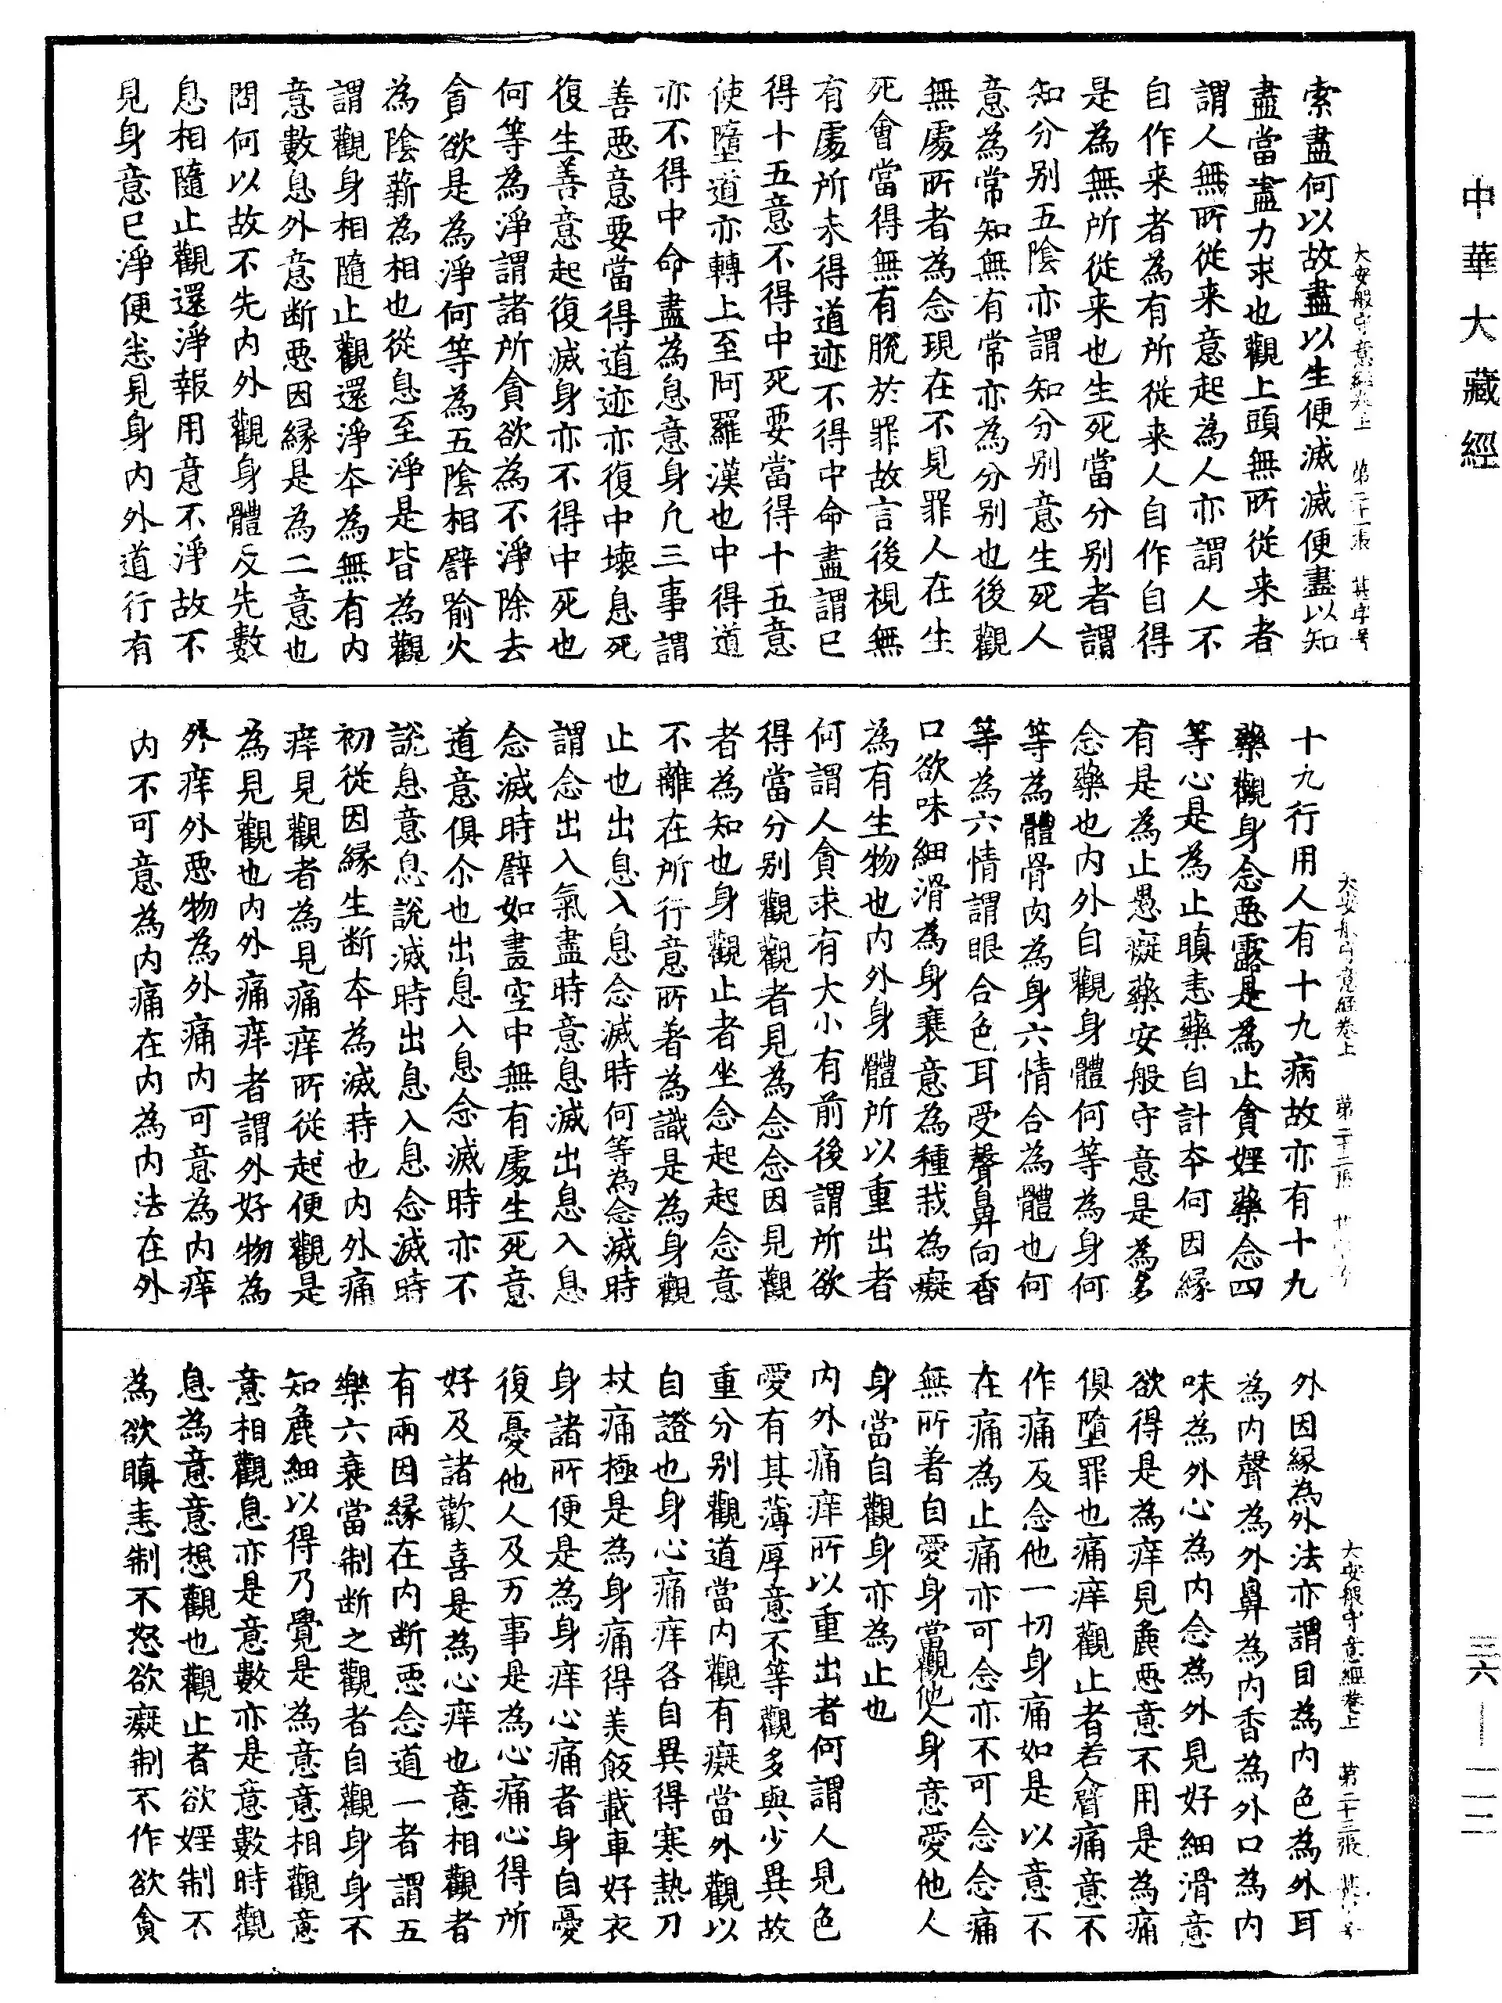 中華大藏經
大安般守意經卷上　第二十一張　甚字号
索盡何以故盡以生便滅滅便盡以知
盡當盡力求也觀上頭無所從来者
謂人無所從来意起為人亦謂人不
自作来者為有所從来人自作自得
是為無所從来也生死當分别者謂
知分别五陰亦謂知分别意生死人
意為常知無有常亦為分别也後觀
無處所者為念現在不見罪人在生
死會當得無有脫於罪故言後視無
有處所未得道迹不得中命盡謂已
得十五意不得中死要當得十五意
使墮道亦轉上至阿羅漢也中得道
亦不得中命盡為息意身凢三事謂
善惡意要當得道迹亦復中壞息死
復生善意起復滅身亦不得中死也
何等為淨謂諸所貪欲為不淨除去
貪欲是為淨何等為五陰相譬喻火
為陰薪為相也從息至淨是皆為觀
謂觀身相隨止觀還淨本為無有内
意數息外意断惡因緣是為二意也
問何以故不先内外觀身體反先數
息相隨止觀還淨報用意不淨故不
見身意已淨便悉見身内外道行有
大安般守意經卷上　第二十二張
十九行用人有十九病故亦有十九
藥觀身念惡露是為止貪婬藥念四
等心是為止瞋恚藥自計本何因緣
有是為止愚癡藥安般守意是為多
念藥也内外自觀身體何等為身何
等為體骨肉為身六情合為體也何
等為六情謂眼合色耳受聲鼻向香
口欲味細滑為身衰意為種栽為癡
為有生物也内外身體所以重出者
何謂人貪求有大小有前後謂所欲
得當分别觀觀者見為念念因見觀
者為知也身觀止者坐念起起念意
不離在所行意所著為識是為身觀
止也出息入息念滅時何等為念滅時
謂念出入氣盡時意息滅出息入息
念滅時譬如畫空中無有處生死意
道意俱尒也出息入息念滅時亦不
說息意息說滅時出息入息念滅時
初從因緣生断本為滅時也内外痛
痒見觀者為見痛痒所從起便觀是
為見觀也内外痛痒者謂外好物為
外痒外惡物為外痛内可意為内痒
内不可意為内痛在内為内法在外
大安般守意經卷上　第二十三張
外因緣為外法亦謂目為内色為外耳
為内聲為外鼻為内香為外口為内
味為外心為内念為外見好細滑意
欲得是為痒見麁惡意不用是為痛
俱墮罪也痛痒觀止者若人臂痛意不
作痛反念他一切身痛如是以意不
在痛為止痛亦可念亦不可念念痛
無所著自愛身當觀他人身意愛他人
身當自觀身亦為止也
内外痛痒所以重出者何謂人見色
愛有其薄厚意不等觀多與少異故
重分别觀道當内觀有癡當外觀以
自證也身心痛痒各自異得寒熱刀
杖痛極是為身痛得美飯載車好衣
身諸所便是為身痒心痛者身自憂
復憂他人及万事是為心痛心得所
好及諸歡喜是為心痒也意相觀者
有兩因緣在内断惡念道一者謂五
樂六衰當制断之觀者自觀身身不
知麁細以得乃覺是為意意相觀意
意相觀息亦是意數亦是意數時觀
息為意意想觀也觀止者欲婬制不
為欲瞋恚制不怒欲癡制不作欲貪
三六—一一二